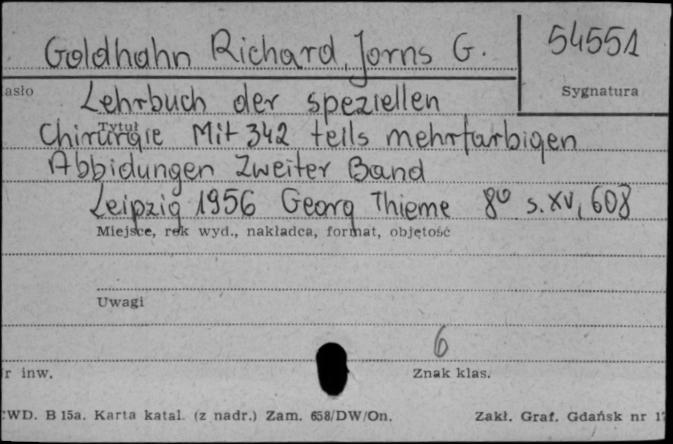 Goldhahn Richard, Jorns G.
54551
asło
Sygnatura
Lehrbuch der speziellen
Tytuł
Chirurgie Mit 342 teils mehrfarbigen
Abbidungen Zweiter Band
Leipzig 1956 Georg Thieme 8º s. XV, 608
Miejsce, rok wyd., nakładca, format, objętość
Uwagi
6
r inw.
Znak klas.
WD. B 15a. Karta katal. (z nadr.) Zam. 658/DW/On.
Zakł. Graf. Gdańsk nr 1